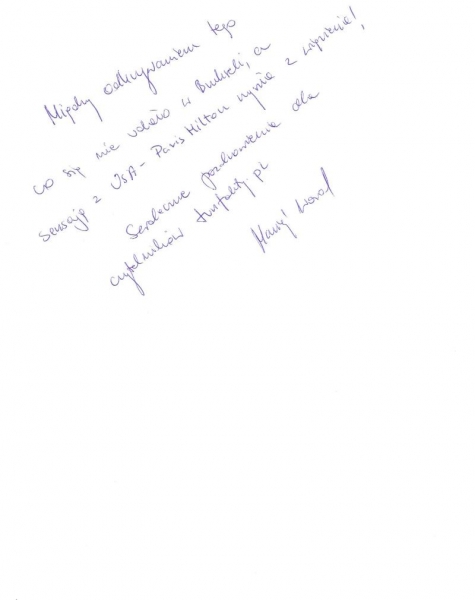 Między odkrywaniem tego
co się nie udało w Brukseli, a
sensacją z USA - Paris Hilton wyszła z więzienia!,
Serdeczne pozdrowienia dla
czytelników tvnfakty.pl
Maciej